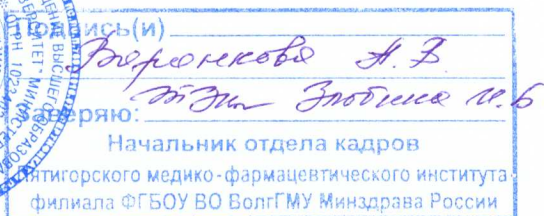 Подпись(и)
Воронкова А. В
Злобина И. Б
Заверяю:
Начальник отдела кадров
Пятигорского медико-фармацевтического института
филиала ФГБОУ ВО ВолгГМУ Минздрава России